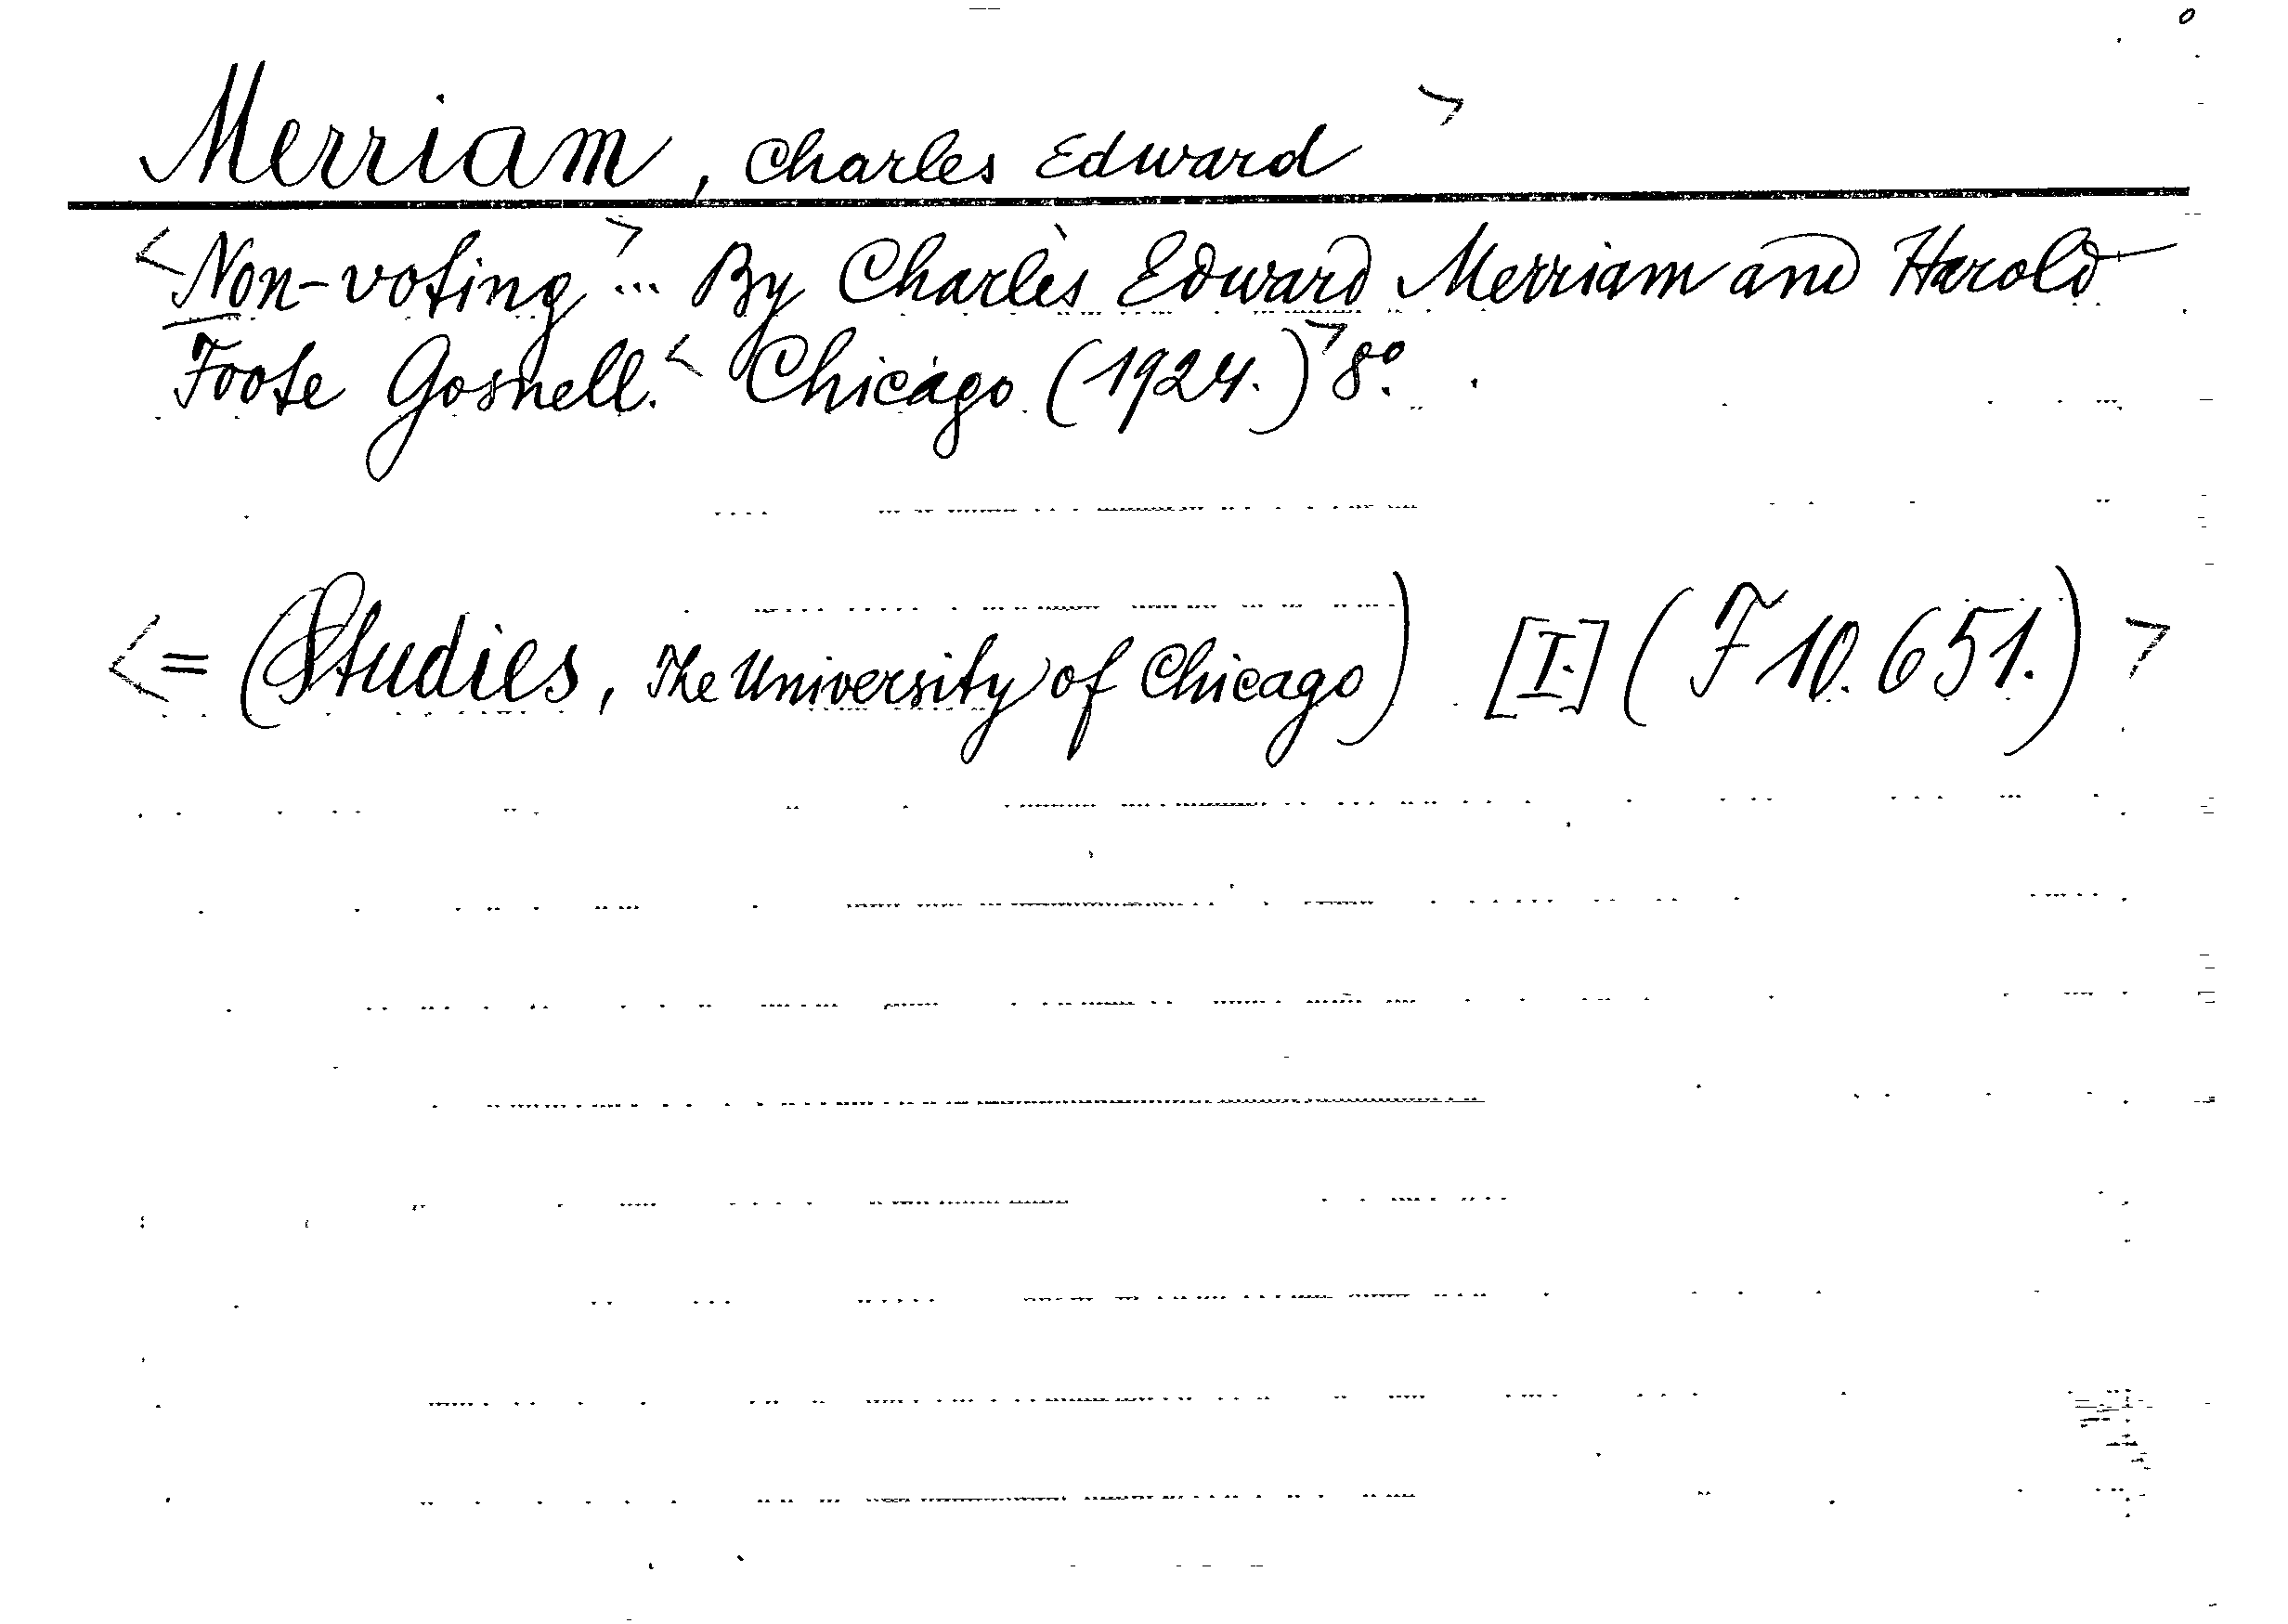 Merriam, Charles Edward >
< Non-voting > ... By Charles Edward Merriam and Harold
Foote Gosnell. < Chicago (1924.) > 8º.
< = (Studies, The University of Chicago) [I.] (F 10.651.) >